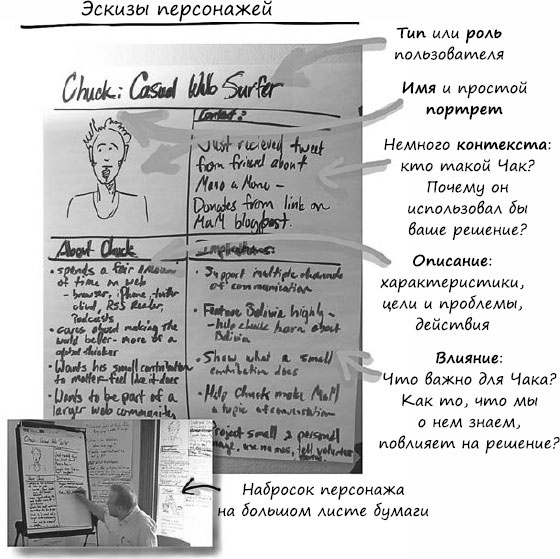 Эскизы персонажей
Chuck: Casual Web Surfer
Context:
Just recieved tweet
from friend about
Mano a Mano –
Donates from link on
MaM blogpost.
About Chuck
• spends a fair amount
of time on web
– browser, iPhone, twitter
client, RSS Reader,
Podcasts
• cares about making the
world better – more of a
global thinker
• Wants his small contribution
to matter – feel like it does
• Wants to be part of a
larger web communities
Implications:
• Support multiple channels
of communication
• Feature Bolivia highly –
– help chuck learn about
Bolivia
• Show what a small
contribution does
• Help Chuck make MaM
a topic of conversation
Project small & personal
Тип или роль
пользователя
Имя и простой
портрет
Немного контекста:
кто такой Чак?
Почему он
использовал бы
ваше решение?
Описание:
характеристики,
цели и проблемы,
действия
Влияние:
Что важно для Чака?
Как то, что мы
о нем знаем,
повлияет на решение?
Набросок персонажа
на большом листе бумаги